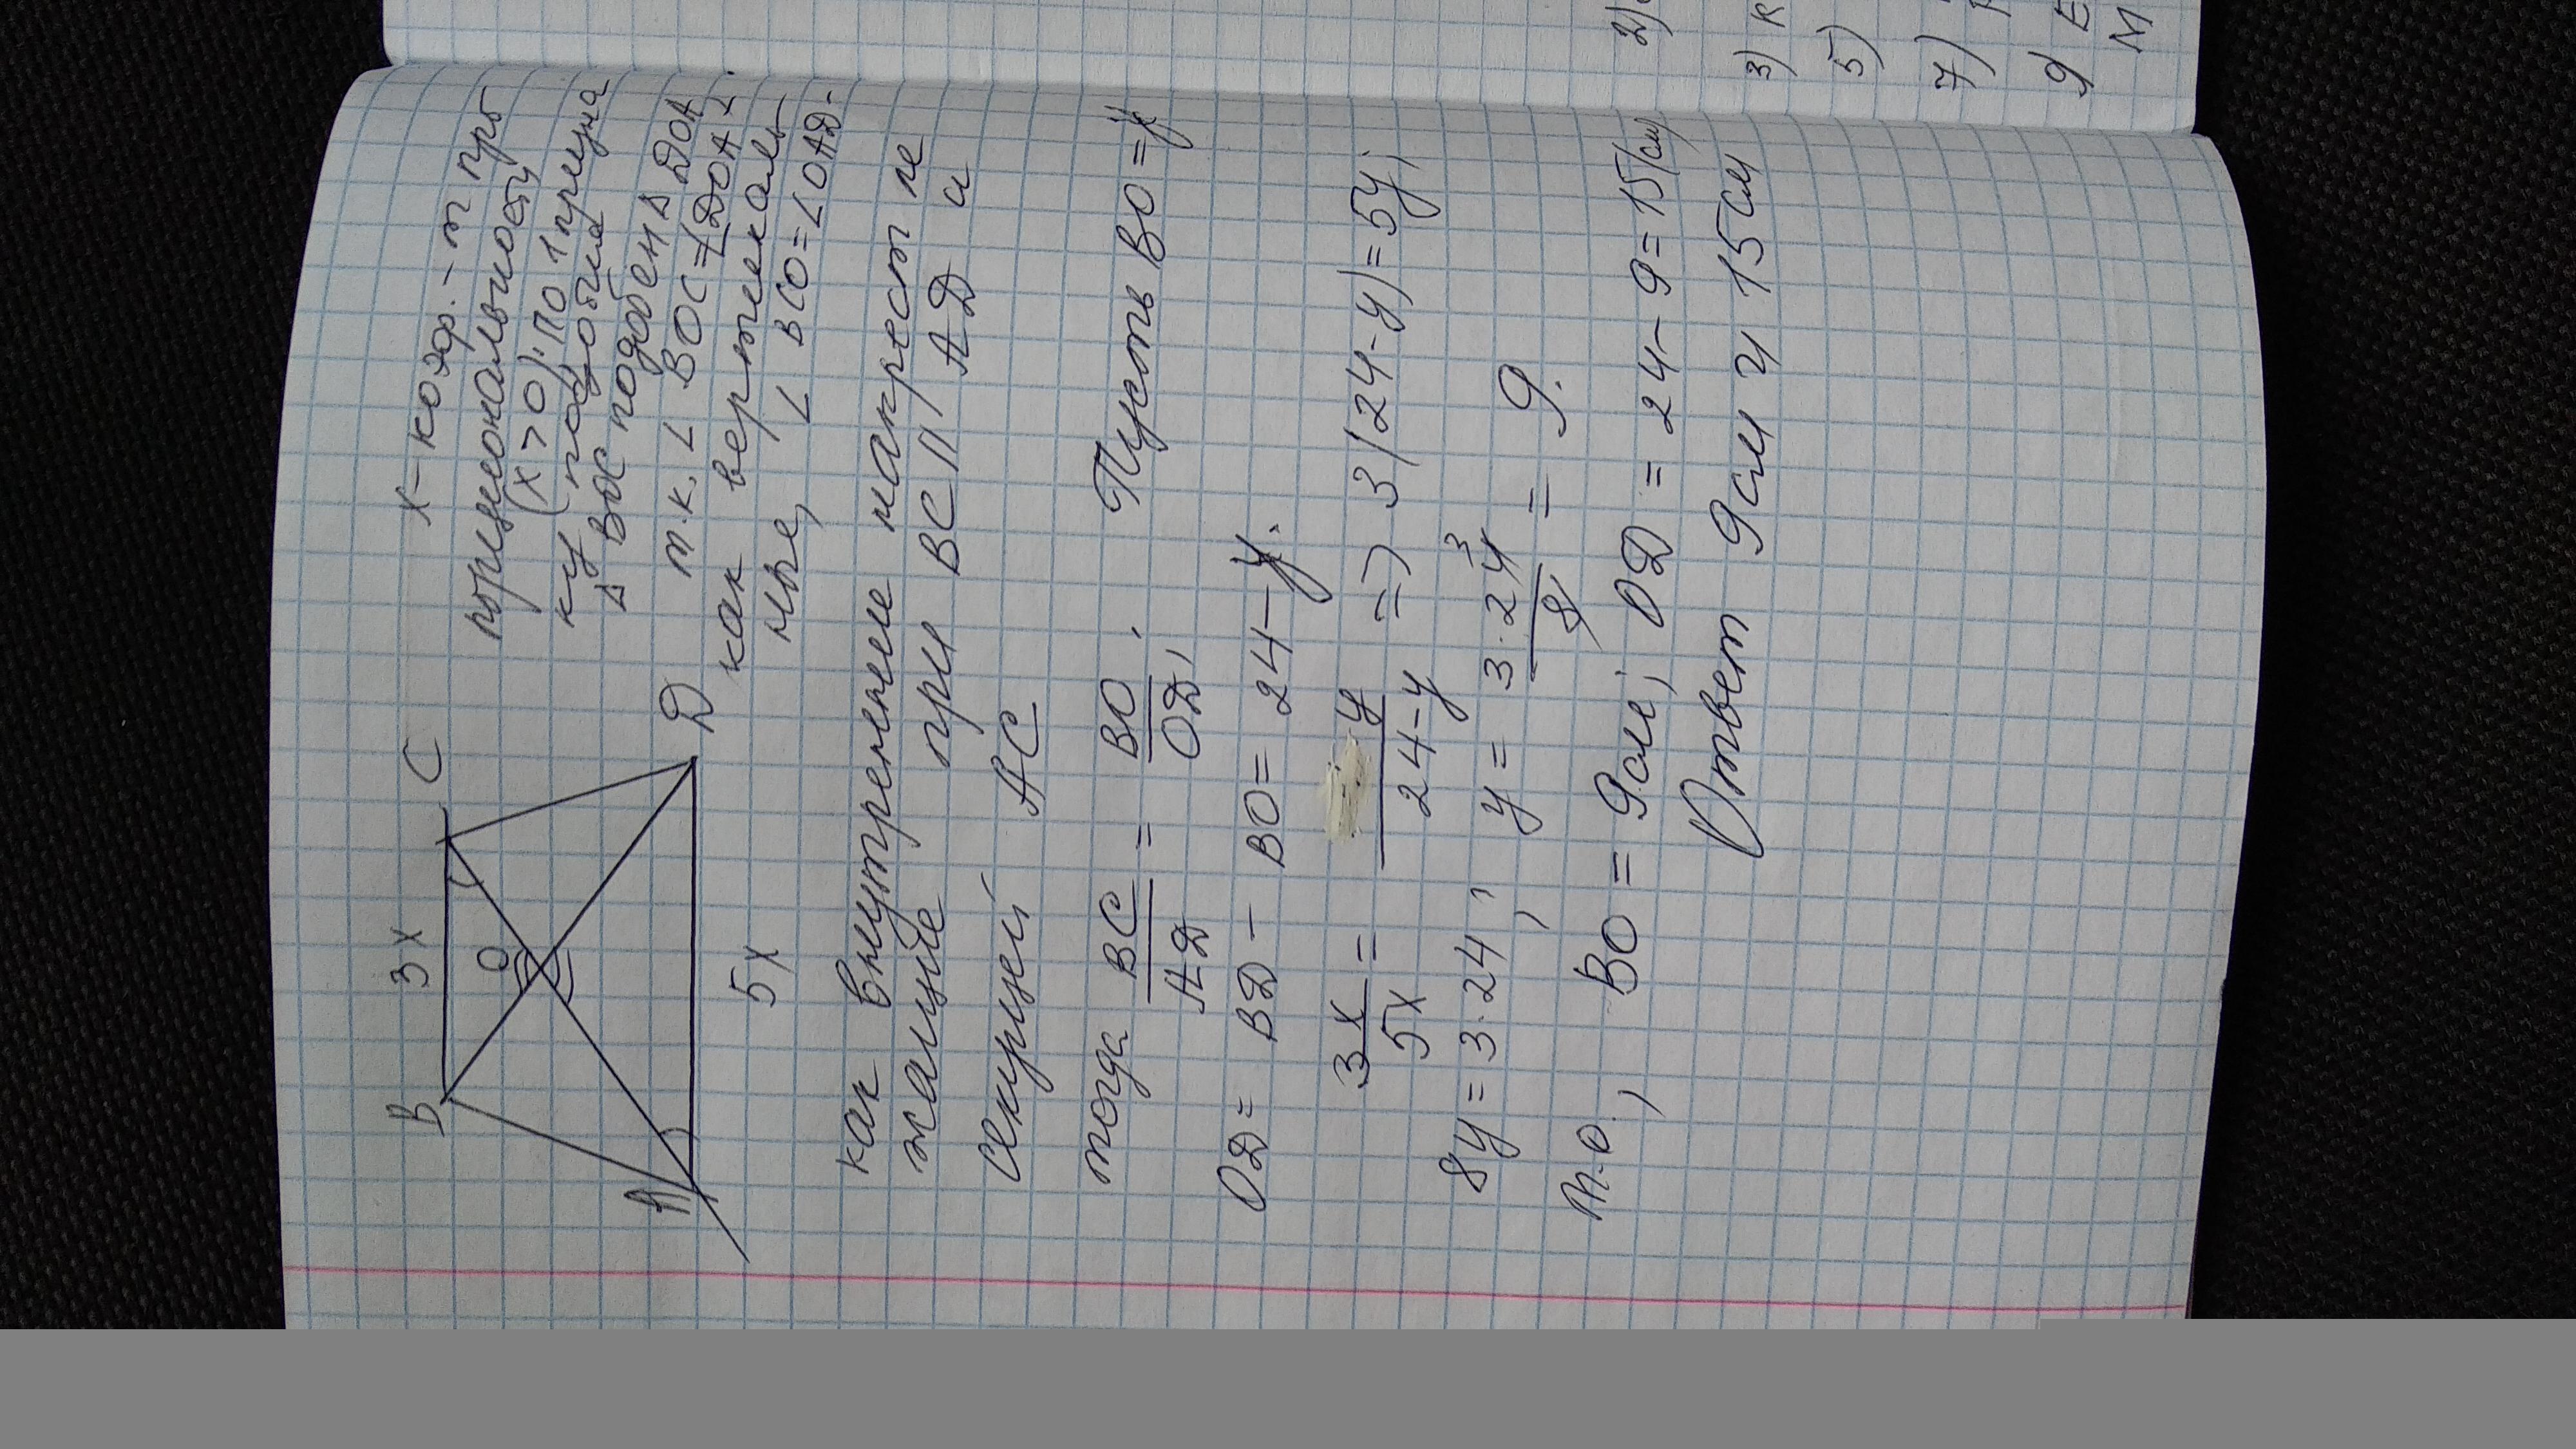 3x
B
C
O
A
Д
5x
x – коэф.-т про
порциональности
(x > 0). По 1 призна
ку подобия
Δ BOC подобен Δ ДОА
т.к. ∠ BOC = ∠DOA
как вертикаль
ные, ∠ BCO = ∠OAD.
как внутренние накрест ле
жащие при BC || AД и
секущей AC
тогда BC/AД = BO/OД, Пусть BO = y
OД = BД – BO = 24 – y.
3x/5x = y/24–y => 3(24–y) = 5y;
8y = 3·24, y = 3·24³/8 = 9.
т.о., BO = 9см; OД = 24 – 9 = 15(см)
Ответ 9см и 15см
2)
3) К
5)
7)
9) Е
М